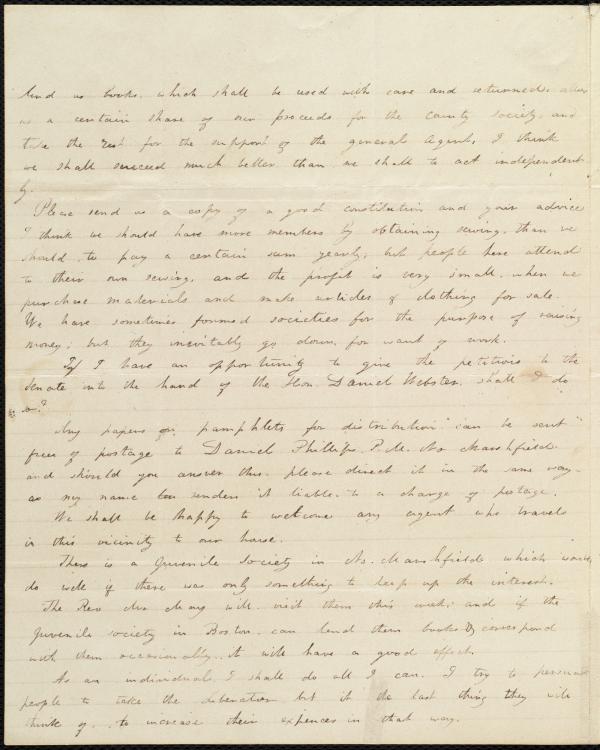 lend us books, which shall be used with care and returned; allow
us a certain share of our proceeds for the county society, and
take the rest for the support of the general Agent, I think
we shall succeed much better than we shall to act independent-
ly.
Please send us a copy of a good constitution and your advice
I think we should have more members by obtaining sewing, than we
should to pay a certain sum yearly, but people here attend
to their own sewing, and the profit is very small, when we
purchase materials and make articles of clothing for sale.
We have sometimes formed societies for the purpose of raising
money; but they inevitably go down, for want of work.
If I have an opportunity to give the petitions to the
Senate into the hand of the Hon. Daniel Webster, shall I do
so?
Any papers or pamphlets for distribution can be sent
free of postage to Daniel Phillips P. M. No Marshfield
and should you answer this, please direct it in the same way
as my name renders it liable to a charge of postage.
We shall be happy to welcome any agent who travels
in this vicinity to our house.
There is a Juvenile Society in No. Marshfield which would
do well if there was only something to keep up the interest.
The Rev Mr May will visit them this week; and if the
Juvenile society in Boston can lend them books & correspond
with them occasionally, it will have a good effect.
As an individual I shall do all I can. I try to persuade
people to take the Liberator but it is the last thing they will
think of, to increase their expences in that way.